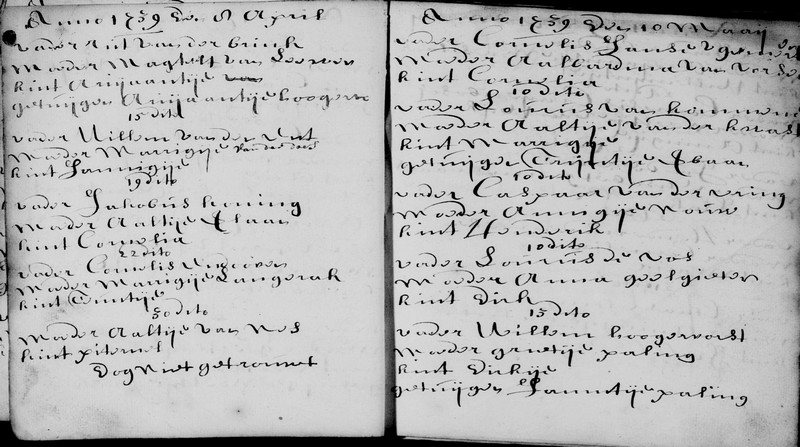 Anno 1759 De. 8 April
vader Aut van der brink
Moeder Magtelt van Leeuven
kint Arijaantije
getuijgen Arijaantije hoogervo
15 dito
vader Willem van der
Moeder Marrigije van der
kint Jannigije
19 dito
vader Jakobus koning
Moeder Aaltije Claan
kint Cornelia
22 dito
vader Cornelis
Moeder Marrigije Langerak
kint
30 dito
Moeder Aaltije van Nes
kint piternel
Dog Niet getrouwt
Anno 1759 Den 10 Maaij
vader Cornelis Janse
Moeder Aalbardina van
kint Cornelia
10 dito
vader Louwus van
Moeder Aaltije van der
kint Marrigije
getuijgen Trijntije
10 dito
vader Caspaar van der vring
Moeder Annigije Nouw
kint Hendrik
10 dito
vader Louwus de vos
Moeder Anna geelgieter
kint Dirk
15 dito
vader Willem hoogervorst
Moeder grietije paling
kint Dirkije
getuijgen Jannitije paling